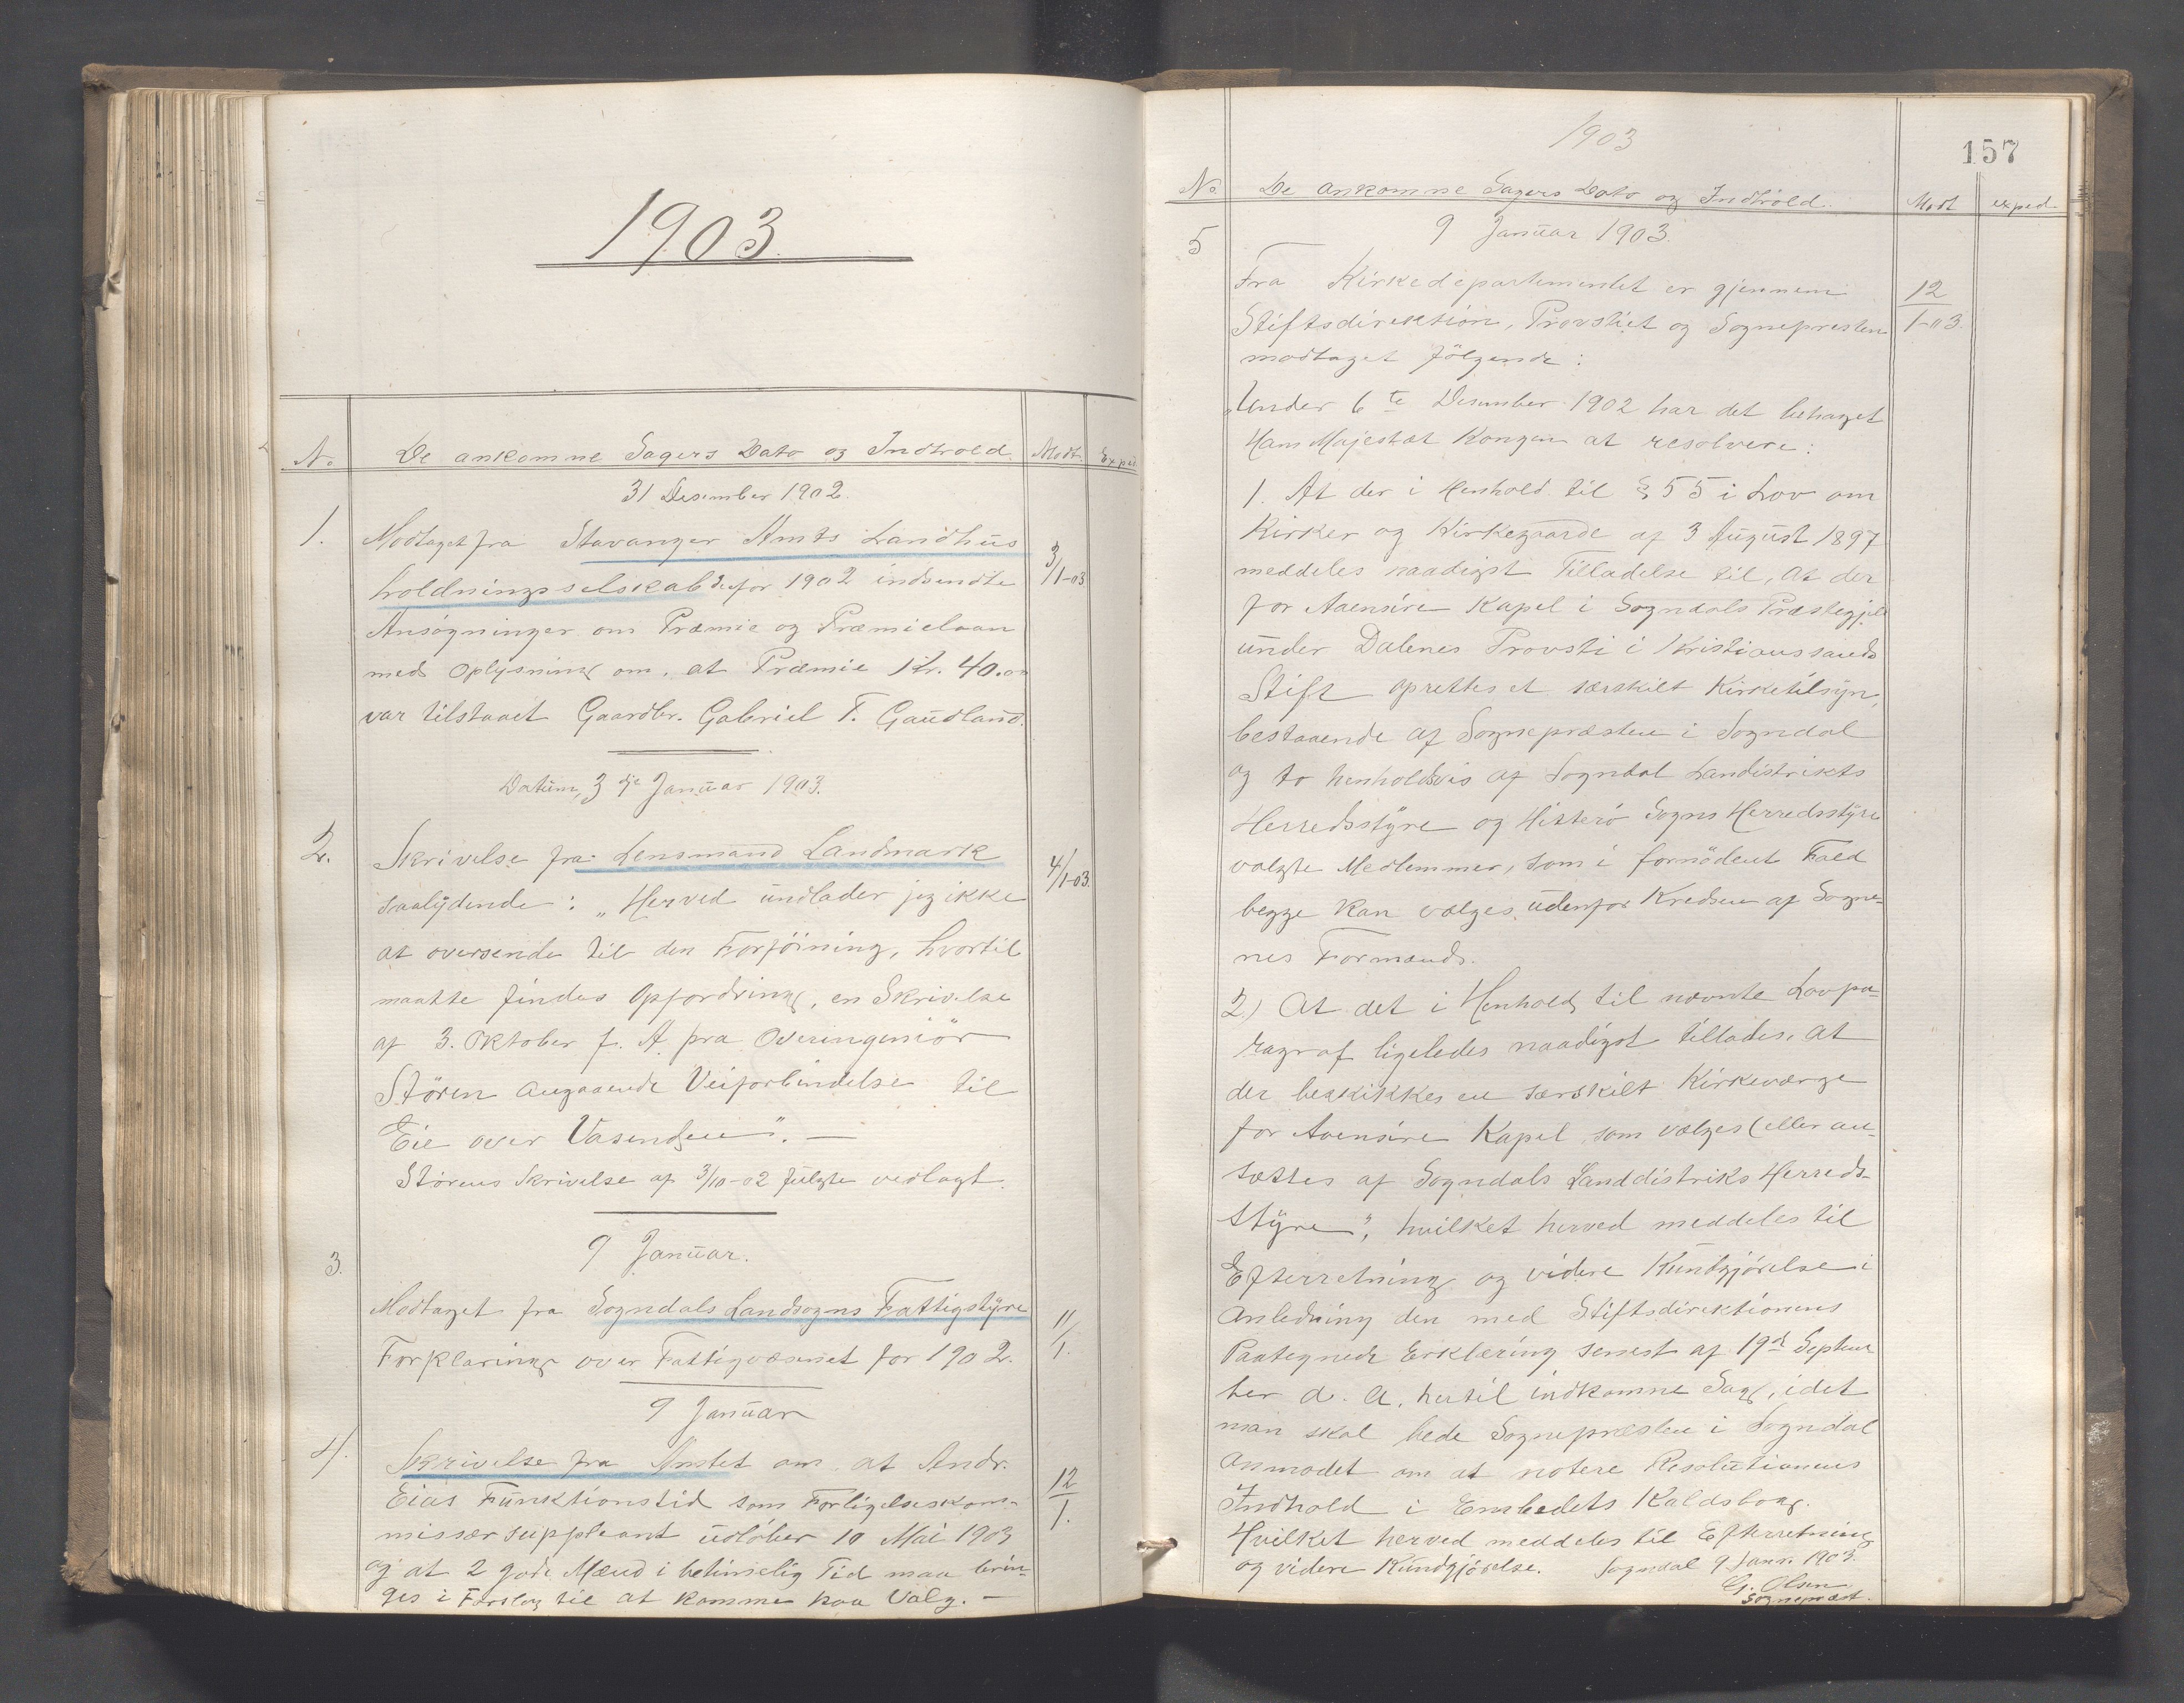 1903.
No. De ankomne Sagers Dato og Indhold. Modt. Exped.
31 Desember 1902.
1. Modtaget fra Stavanger Amts Landhus
holdningsselskab de for 1902 indsendte 3/1-03
Ansøgninger om Præmie og Præmielaan
med Oplysning om, at Præmie Kr. 40.00
var tilstaaet Gaardbr. Gabriel T. Gaudland.
Datum, 3dje Januar 1903.
2. Skrivelse fra Lensmand Landmark 4/1-03.
saalydende: „Herved undlader jeg ikke
at oversende til den Forföining, hvortil
maatte findes Opfordring, en Skrivelse
af 3. Oktober f. A. fra Overingeniör
Stören angaaende Veiforbindelse til
Eie over Vasenden". —
Störens Skrivelse af 3/10-02 fulgte vedlagt.
9 Januar.
3. Modtaget fra Sogndals Landsogns Fattigstyre 11/1.
Forklaring over Fattigvæsenet for 1902.
9 Januar
4. Skrivelse fra Amtet om at Andr. 12/1.
Eias Funktionstid som Forligelseskom-
missærsuppleant udløber 10 Mai 1903
og at 2 gode Mænd i betimelig Tid maa brin-
ges i Forslag til at komme paa Valg. —
1903
157
No De ankomne Sagers Dato og Indhold. Modt exped.
9 Januar 1903.
5
Fra Kirkedepartementet er gjennem 12/1-03.
Stiftsdirektion, Provstiet og Sognepresten
modtaget følgende:
„Under 6te Desember 1902 har det behaget
Hans Majestæt Kongen at resolvere:
1. At der i Henhold til § 55 i Lov om
Kirker og Kirkegaarde af 3 August 1897
meddeles naadigst Tilladelse til, at der
for Aaensire Kapel i Sogndals Præstegjeld
under Dalenes Provsti i Kristianssands
Stift oprettes et særskilt Kirketilsyn,
bestaaende af Sognepræsten i Sogndal
og to henholdsvis af Sogndal Landdistrikts
Herredsstyre og Hitterø Sogns Herredsstyre
valgte Medlemmer, som i fornødent Fald
begge kan vælges udenfor Kredsen af Sogne-
nes Formænd.
2.) At det i Henhold til nævnte Lovpa-
ragraf ligeledes naadigst tillades, at
der beskikkes en særskilt Kirkeværge
for Aaensire Kapel, som vælges (eller an-
sættes af Sogndals Landdistrikts Herreds-
styre", hvilket herved meddeles til
Efterretning og videre Kundgjørelse i
Anledning den med Stiftsdirektionens
Paategnede Erklæring senest af 19de Septem
ber d. A. hertil indkomne Sag, idet
man skal bede Sognepræsten i Sogndal
anmodet om at notere Resolutionens
Indhold i Embedets Kaldsbog.
Hvilket herved meddeles til Efterretning
og videre Kundgjørelse. Sogndal 9 Janr. 1903.
G. Olsen
Sognepræst.